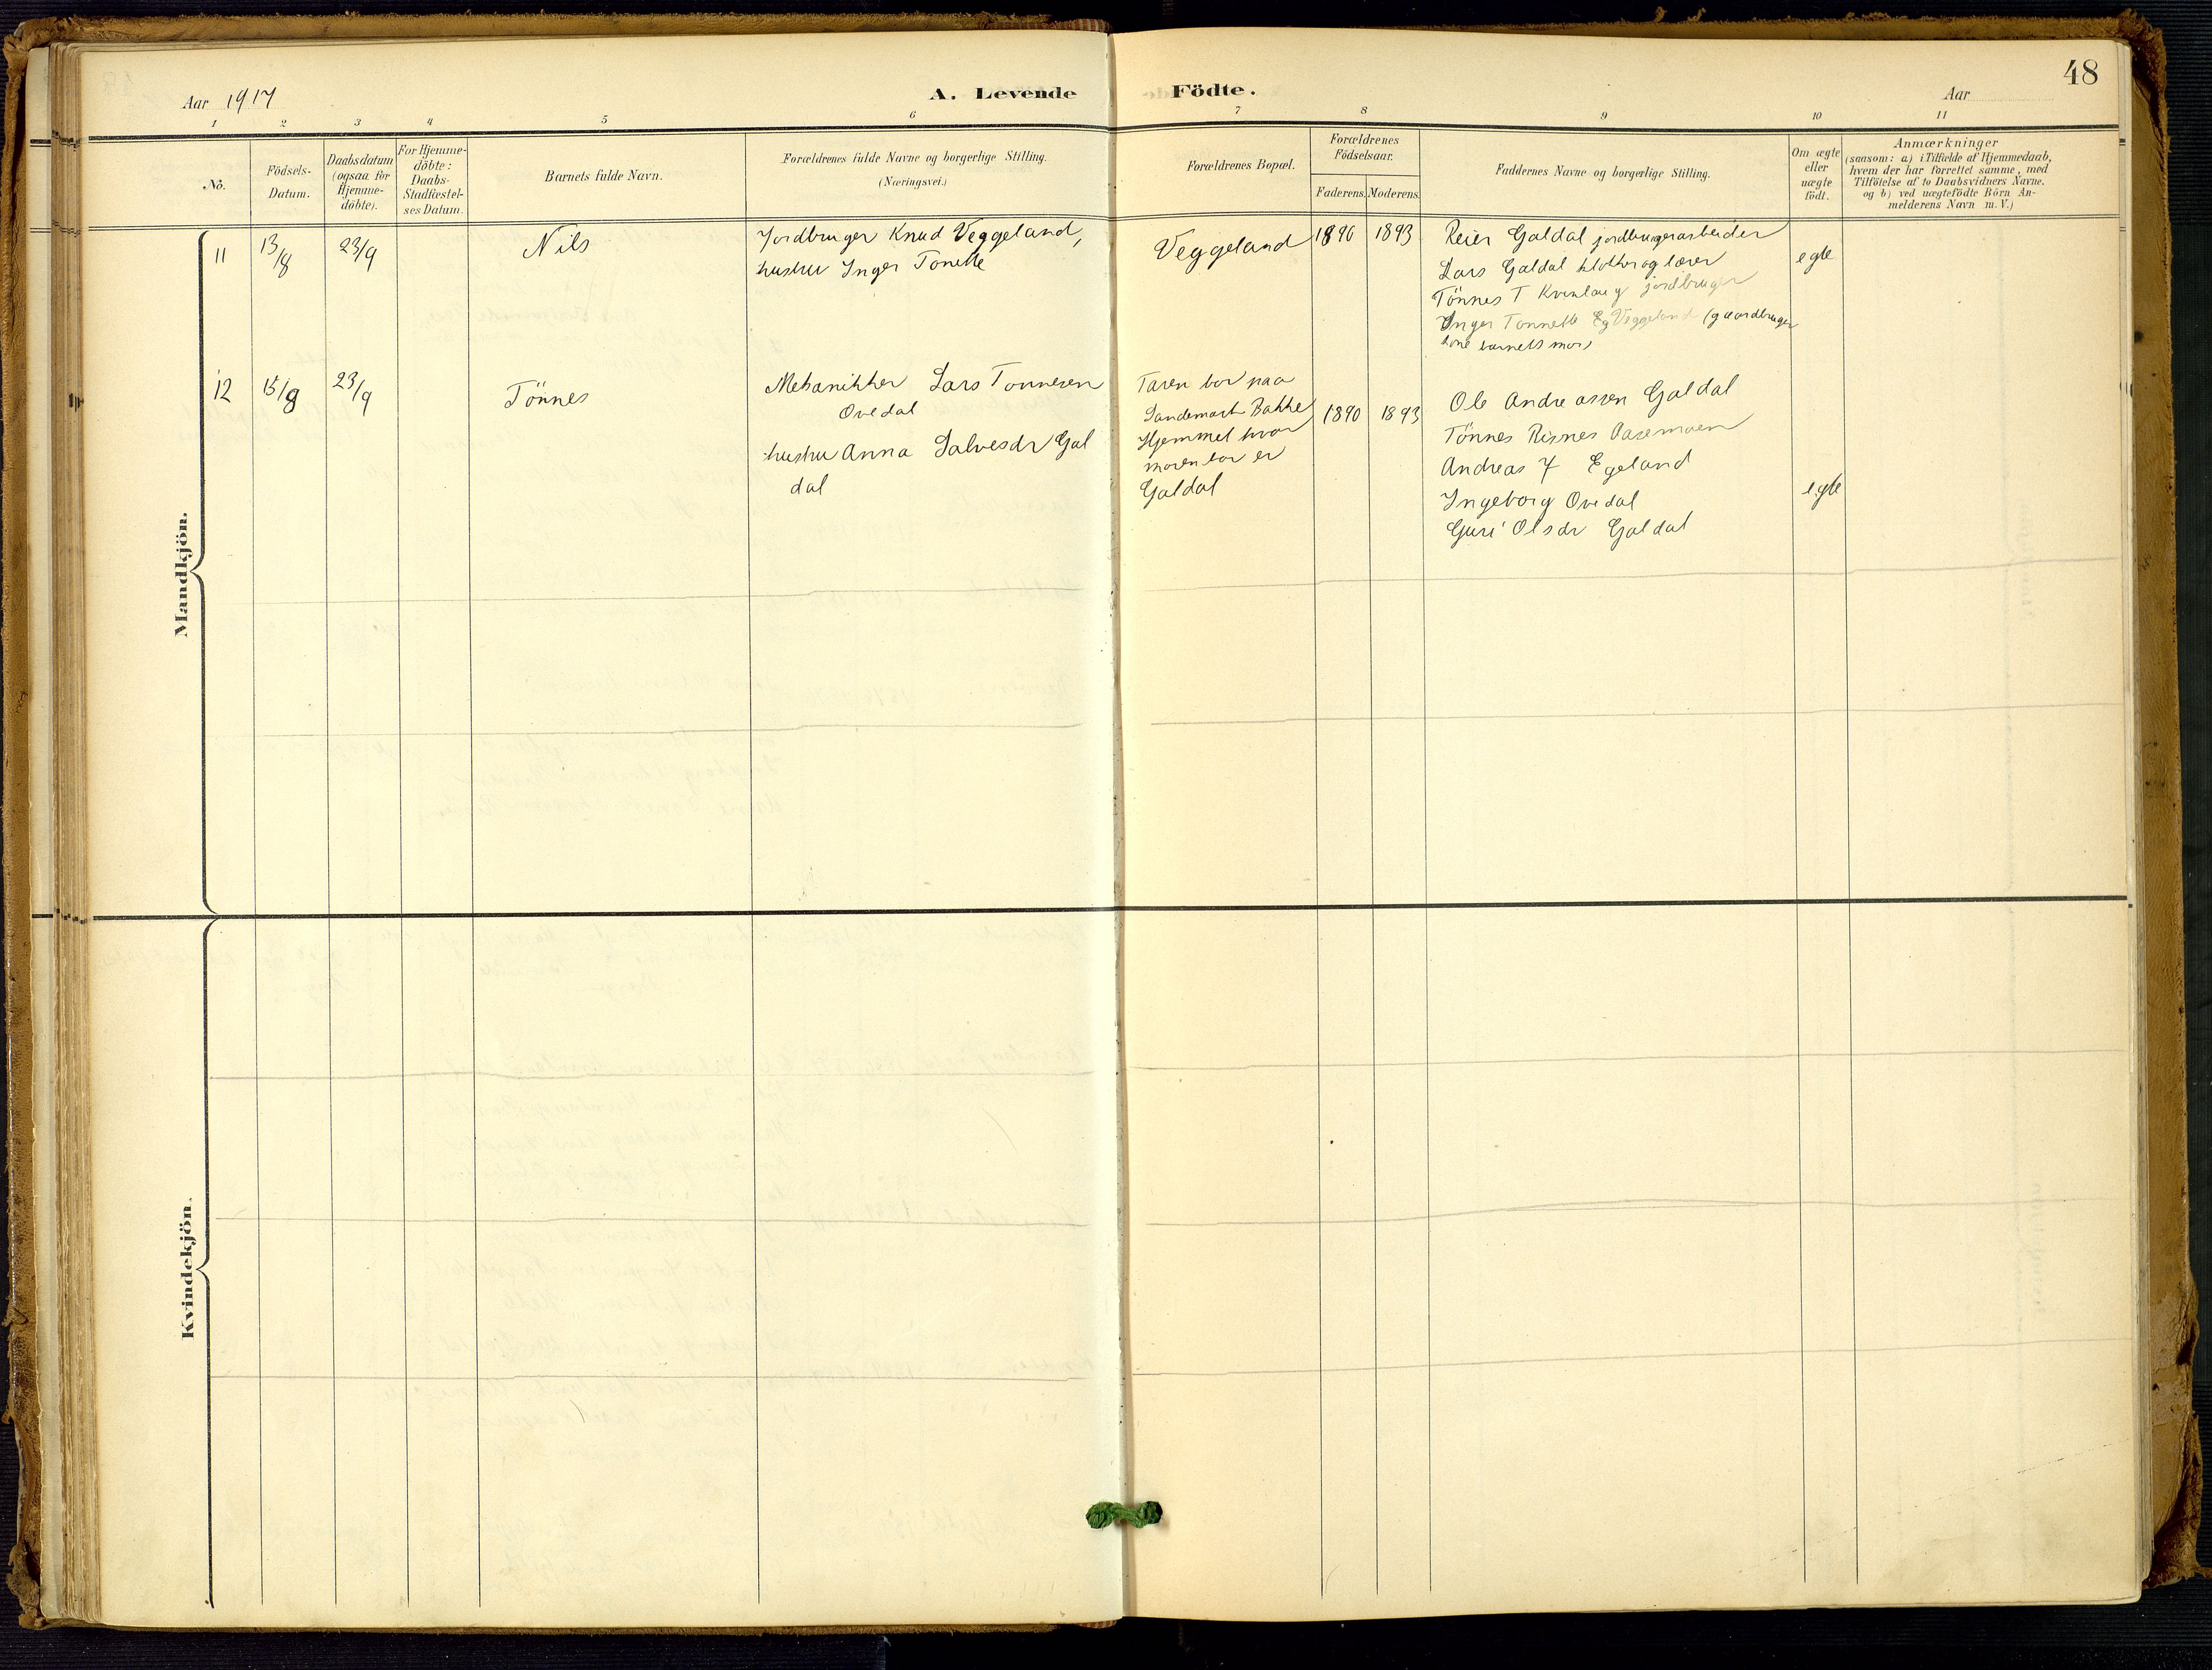 48
Aar 1917
A. Levende Födte.
Aar
1 2 3 4 5 6 7 8 9 10 11
No.
Födsels-Datum.
Daabsdatum (ogsaa for Hjemme-döbte).
For Hjemme-döbte: Daabs-Stadfæstel-ses Datum.
Barnets fulde Navn.
Forældrenes fulde Navne og borgerlige Stilling.
(Næringsvei.)
Forældrenes Bopæl.
Forældrenes Födselsaar.
Faderens. Moderens.
Faddernes Navne og borgerlige Stilling.
Om ægte eller uægte födt.
Anmærkninger
(saasom: a) i Tilfælde af Hjemmedaab,
hvem der har forrettet samme, med
Tilföielse af to Daabsvidners Navne,
og b) ved uægtefödte Börn An-
melderens Navn m. V.)
Mandkjön.
11 13/8 23/9 Nils
Jordbruger Knud Veggeland,
hustru Inger Tonette
Veggeland 1890 1893
Reier Galdal jordbrugerarbeider
Lars Galdal klokker og lærer
Tönnes T Kvinlaug jordbruger
Inger Tonnette Eg Veggeland (gaardbruger
kone barnets mor)
egte
12 15/8 23/9 Tönnes
Mekanikker Lars Tonnesen
Ovedal
hustru Anna Salvesdr Gal
dal
Faren bor paa
Sandemark Bakke
Hjemmet hvor
moren bor er
Galdal
1890 1893
Ole Andreassen Galdal
Tönnes Risnes Aasemoen
Andreas F Egeland
Ingeborg Ovedal
Guri Olsdr Galdal
egte
Kvindekjön.